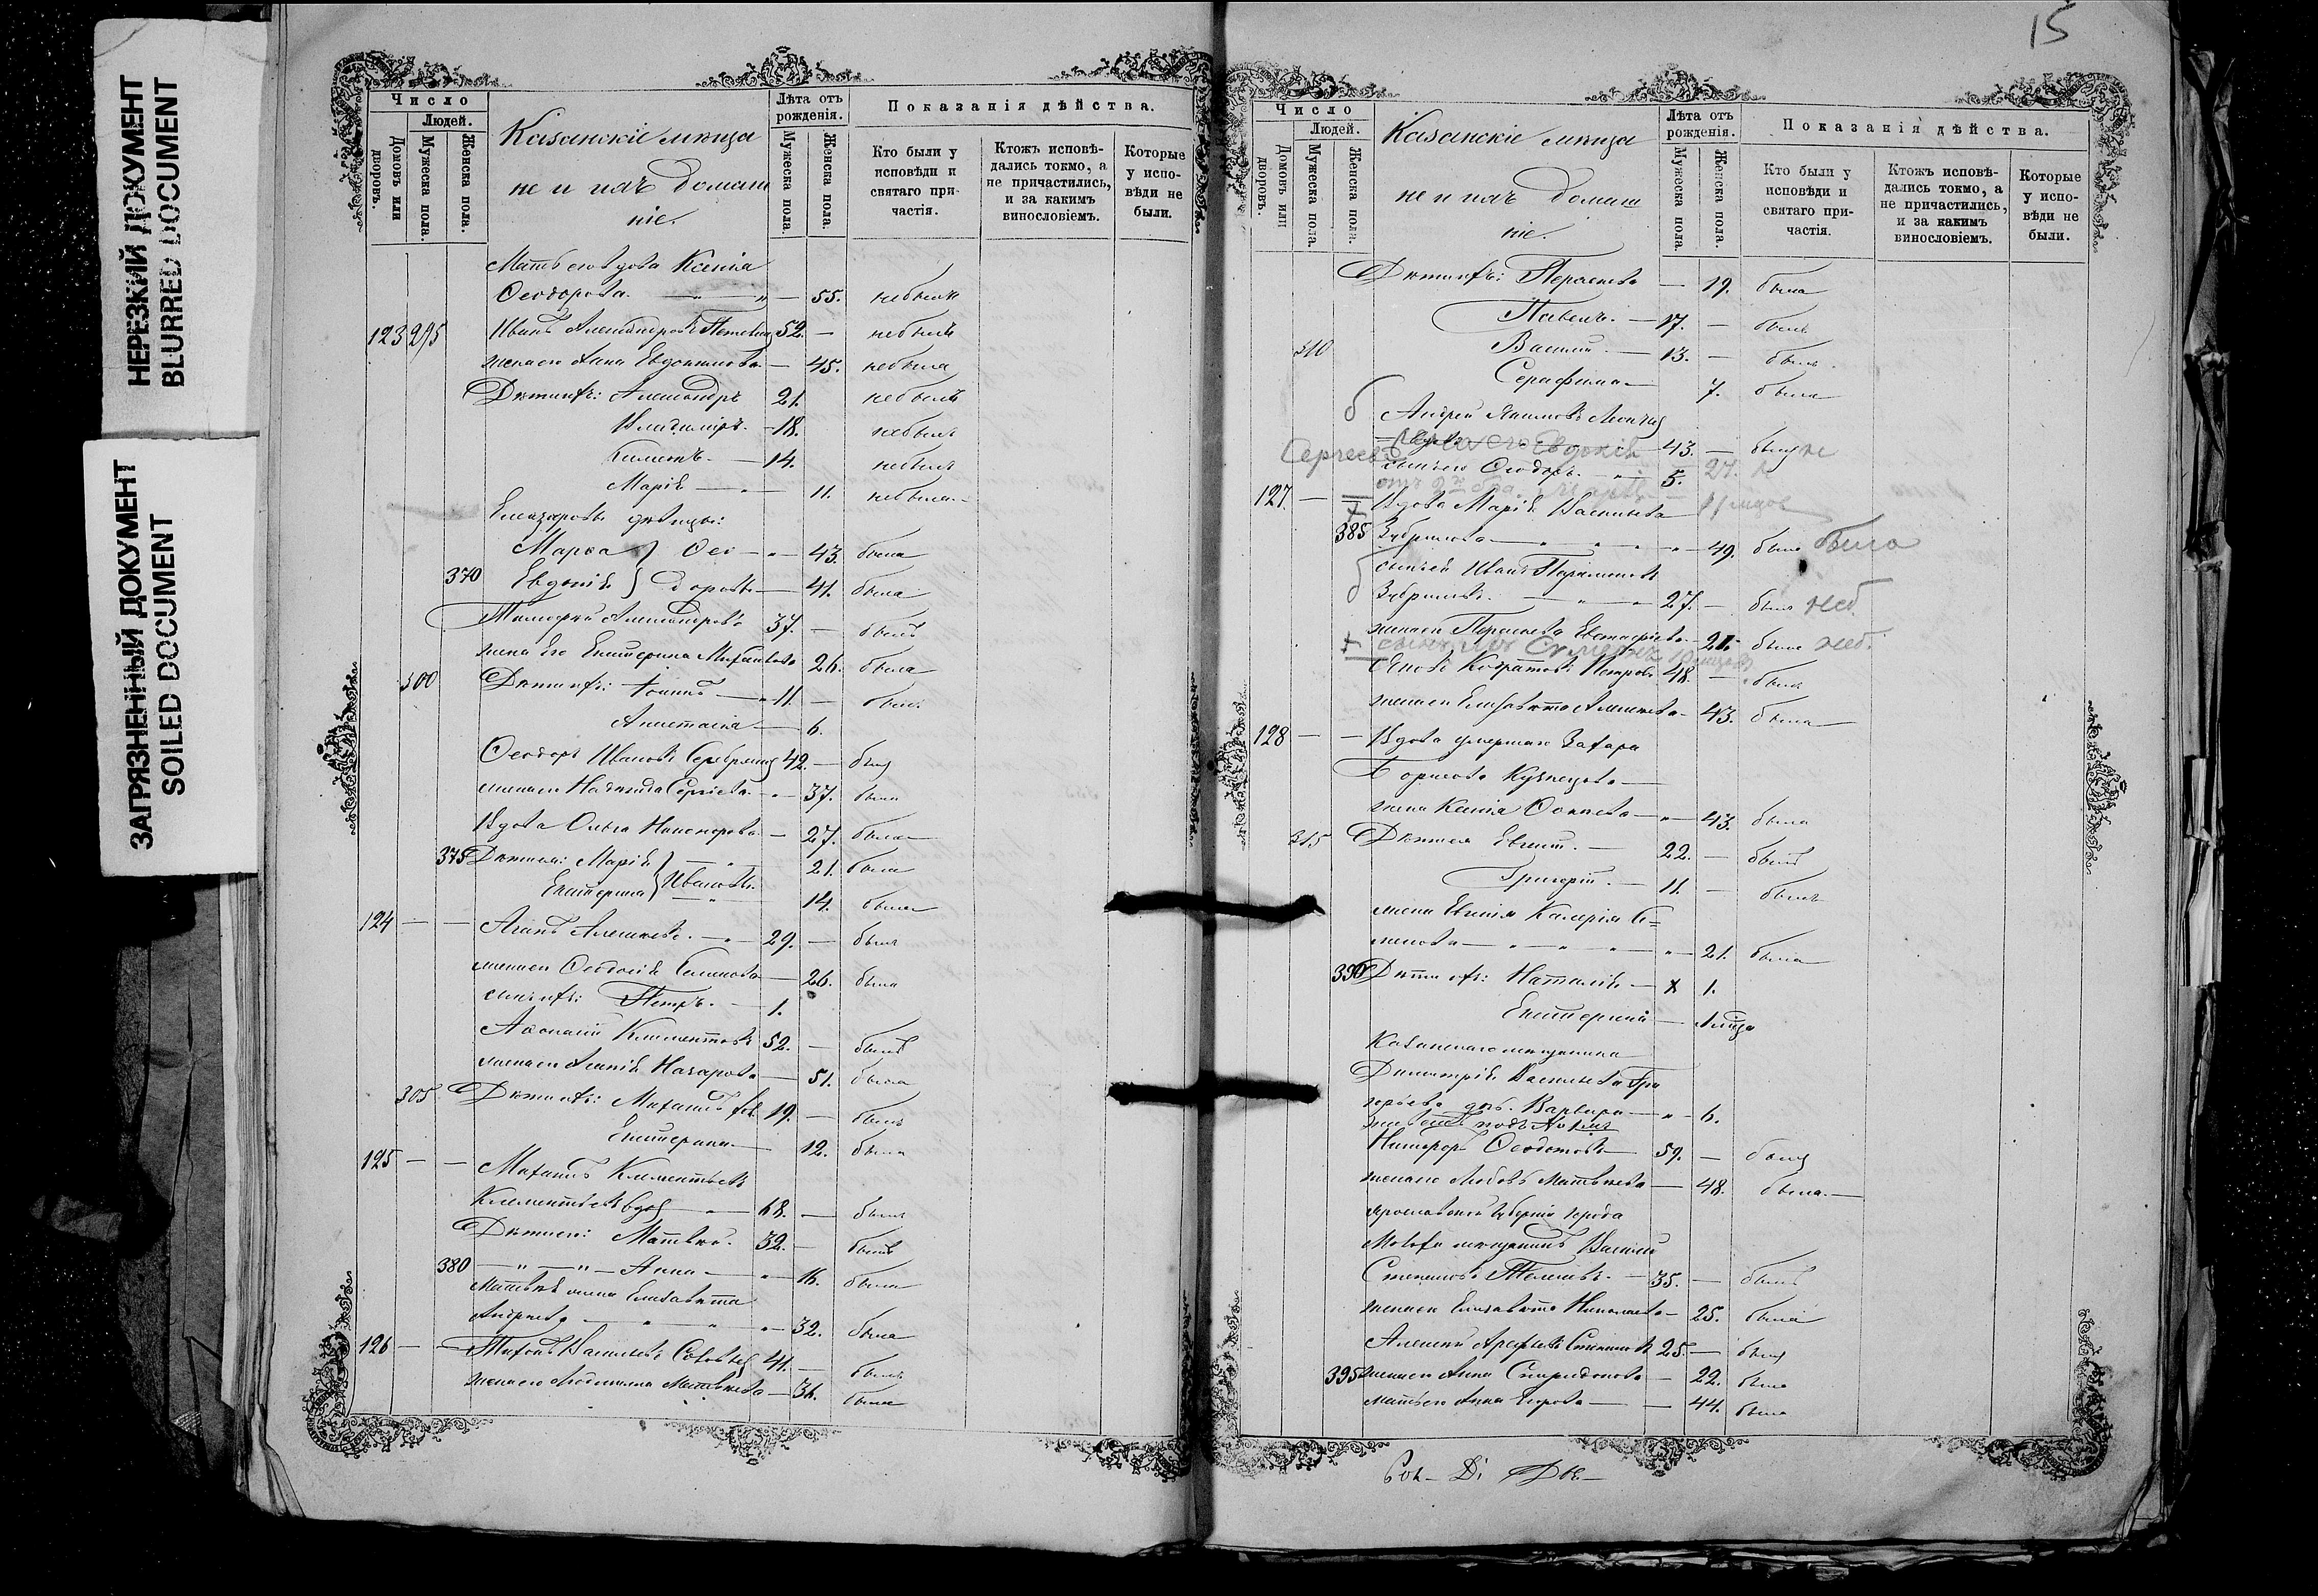 НЕРЕЗКИЙ ДОКУМЕНТ
BLURRED DOCUMENT
ЗАГРЯЗНЕННЫЙ ДОКУМЕНТ
SOILED DOCUMENT
Число
Людей.
Домовъ или дворовъ.
Мужеска пола.
Женска пола.
Казанскіе мѣща
не и ихъ домаш
ніе.
Лѣта отъ рожденія.
Мужеска пола.
Женска пола.
Показанія дѣйства.
Кто были у исповѣди и святаго при-
частія.
Ктожъ исповѣ-
дались токмо, а не причастились, и за какимъ винословіемъ.
Которые у испо-
вѣди не были.
Мать его вдова Ксенія
Ѳеодорова — 55. не была
123 295 Иванъ Александровъ 52. — не былъ
жена его Анна Евдокимова — 45. не была
Дѣти ихъ: Александръ 21. не былъ
Владиміръ — 18. не былъ
14. не былъ
Марія — 11. не была
дѣвицы:
Марѳа } Ѳео — 43. была
370 Евдокія } доровы — 41. была
Тимофей Александровъ 37. — былъ
жена его Екатерина Михайлова 26. была
300 Дѣти ихъ: Іоаннъ — 11. — былъ
Анастасія — 6.
Ѳеодоръ Ивановъ 42. — былъ
жена его Надежда Сергіева — 37. была
Вдова Ольга Никонорова — 27. была
375 Дѣти: Марія } — 21. была
Екатерина } Ивановы 14. была
124 — — Алексѣевъ — 29. — былъ
жена его Ѳеодосія — 26. была
сынъ ихъ: Петръ. — 1.
Аѳонасій Климентовъ 52. — былъ
жена его Назарова — 51. была
305 Дѣти ихъ: Михаилъ 19. — былъ
Екатерина — 12. была
125 — — Михаилъ Климентьевъ
Климентьевъ вдов — 68. — былъ
Дѣти его: Матвей. 32. — былъ
380 — " — " — Анна — 16. была
Матвѣя жена Елизавета
Андреева — 32. была
126 — Тихонъ Васильевъ 41. — былъ
жена его Людмилла Матвѣева — 36. была
15
Число
Людей.
Домовъ или дворовъ.
Мужеска пола.
Женска пола.
Казанскіе мѣща
не и ихъ домаш
ніе.
Лѣта отъ рожденія.
Мужеска пола.
Женска пола.
Показанія дѣйства.
Кто были у исповѣди и святаго при-
частія.
Ктожъ исповѣ-
дались токмо, а не причастились, и за какимъ винословіемъ.
Которые у испо-
вѣди не были.
Дѣти ихъ: Параскева — 19. была
Павелъ. — 17. — былъ
310 Василій — 13. — былъ
Серафима — 7. была
б Андрей Якимовъ
жена его Евдокія 43. — былъ не
Сергеева
сынъ его Ѳеодоръ 5. 27. н
127. — Вдова Марія Васильева
385 49. была была
б сынъ ея Иванъ
27. — былъ неб.
жена его Параскева — 21. была неб.
Петровъ 48. — былъ
жена его Елизавета Алексѣева — 43. была
128 — — Вдова умершаго Захара
Борисова Кузнецова —
жена Ксенія — 43. была
315 Дѣти ея Евгеній. — 22. — былъ
Григорій. — 11. — былъ
жена Евгенія Калерія Се=
менова — 21. была
390 Дѣти ихъ: Наталія — х 1.
Екатерина —
Казанскаго мѣщанина
Димитрія Васильева Гри
горьева дочь Варвара — 6.
Никифоръ Ѳеодотовъ 59. — былъ
жена его Любовь Матвѣева — 48. была. —
Ярославской губерніи города
Мологи мѣщанинъ Василій
Степановъ — 35. — былъ
жена его Елизавета Николаева — 25. была
Алексѣй Арефьевъ 25. — былъ
395 жена его Анна Спиридонова — 22. была
мать его Анна Егорова — 44. была